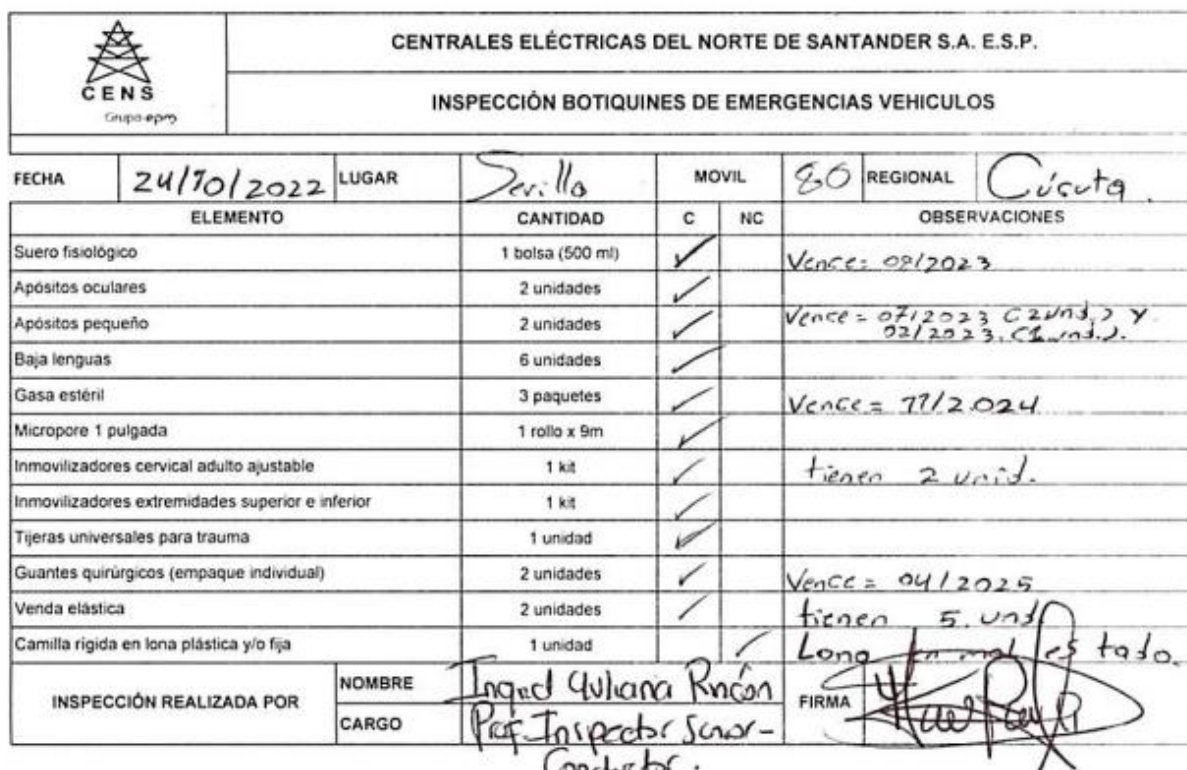 CENS
Grupo·epm
CENTRALES ELÉCTRICAS DEL NORTE DE SANTANDER S.A. E.S.P.
INSPECCIÓN BOTIQUINES DE EMERGENCIAS VEHICULOS
FECHA 24/10/2022 LUGAR Sevilla MOVIL 80 REGIONAL Cúcuta.
ELEMENTO CANTIDAD C NC OBSERVACIONES
Suero fisiológico 1 bolsa (500 ml) ✓ Vence: 09/2023
Apósitos oculares 2 unidades ✓
Apósitos pequeño 2 unidades ✓ Vence = 07/2023 (2und.) y
02/2023. (1und.).
Baja lenguas 6 unidades ✓
Gasa estéril 3 paquetes ✓ Vence = 11/2024
Micropore 1 pulgada 1 rollo x 9m ✓
Inmovilizadores cervical adulto ajustable 1 kit ✓ tienen 2 unid.
Inmovilizadores extremidades superior e inferior 1 kit ✓
Tijeras universales para trauma 1 unidad ✓
Guantes quirúrgicos (empaque individual) 2 unidades ✓ Vence = 04/2025
Venda elástica 2 unidades ✓ tienen 5. und
Camilla rígida en lona plástica y/o fija 1 unidad ✓ Lona en mal estado.
INSPECCIÓN REALIZADA POR NOMBRE Ingrid Yuliana Rincón FIRMA
CARGO Prof. Inspector Senor-
Conductor.